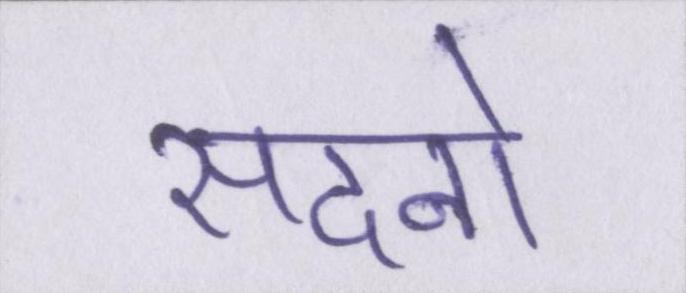 सदनो